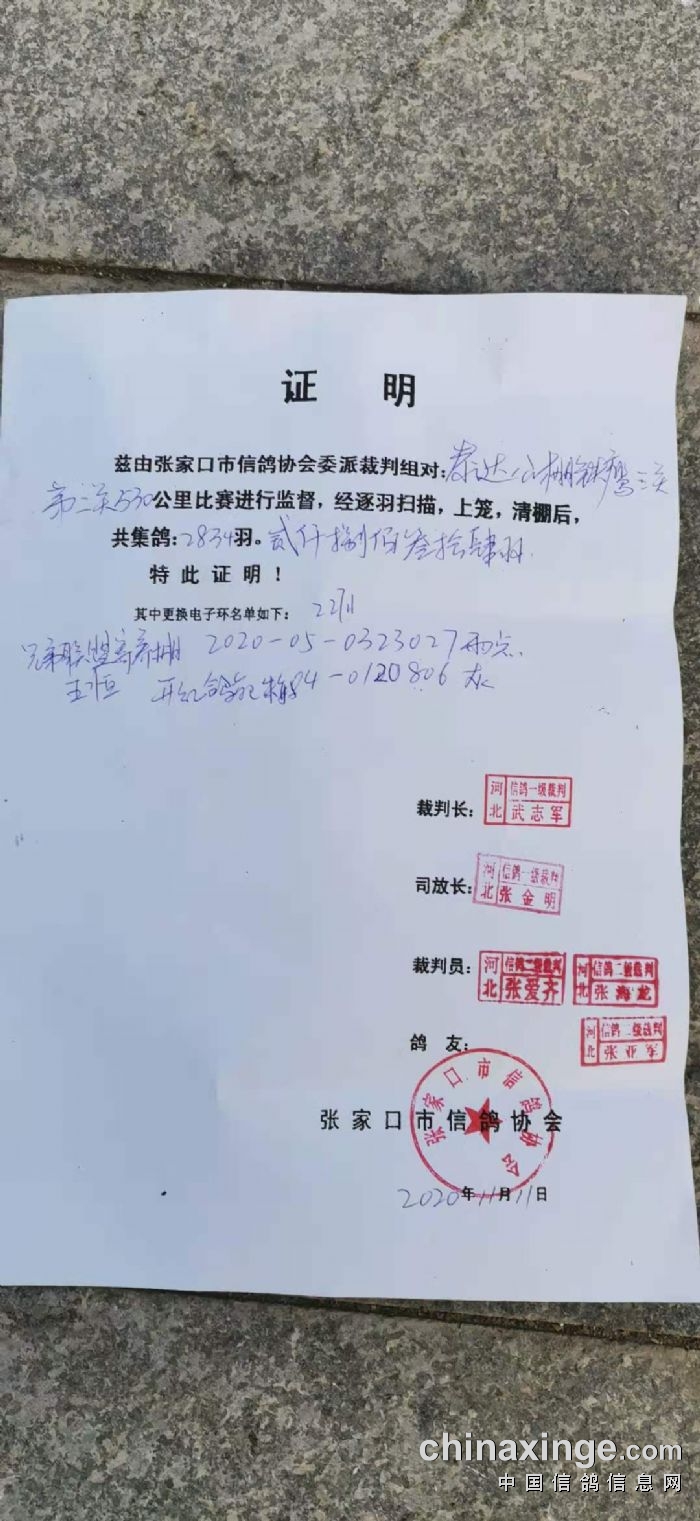 证 明
兹由张家口市信鸽协会委派裁判组对：泰达公棚 鹰三关
第三关530公里比赛进行监督，经逐羽扫描，上笼，清棚后，
共集鸽：2834羽。贰仟捌佰叁拾肆羽
特此证明！
其中更换电子环名单如下： 2羽
兄弟联盟寄养棚 2020-05-0323027 雨点
王恒 开 鸽 84-0120806 灰
裁判长：
河北 信鸽一级裁判 武志军
司放长：
河北 信鸽一级裁判 张金明
裁判员：
河北 信鸽二级裁判 张爱齐
河北 信鸽二级裁判 张海龙
鸽 友：
河北 信鸽二级裁判 张亚军
张家口市信鸽协会
张家口市信鸽协会
2020年11月11日
chinaxinge.com
中国信鸽信息网